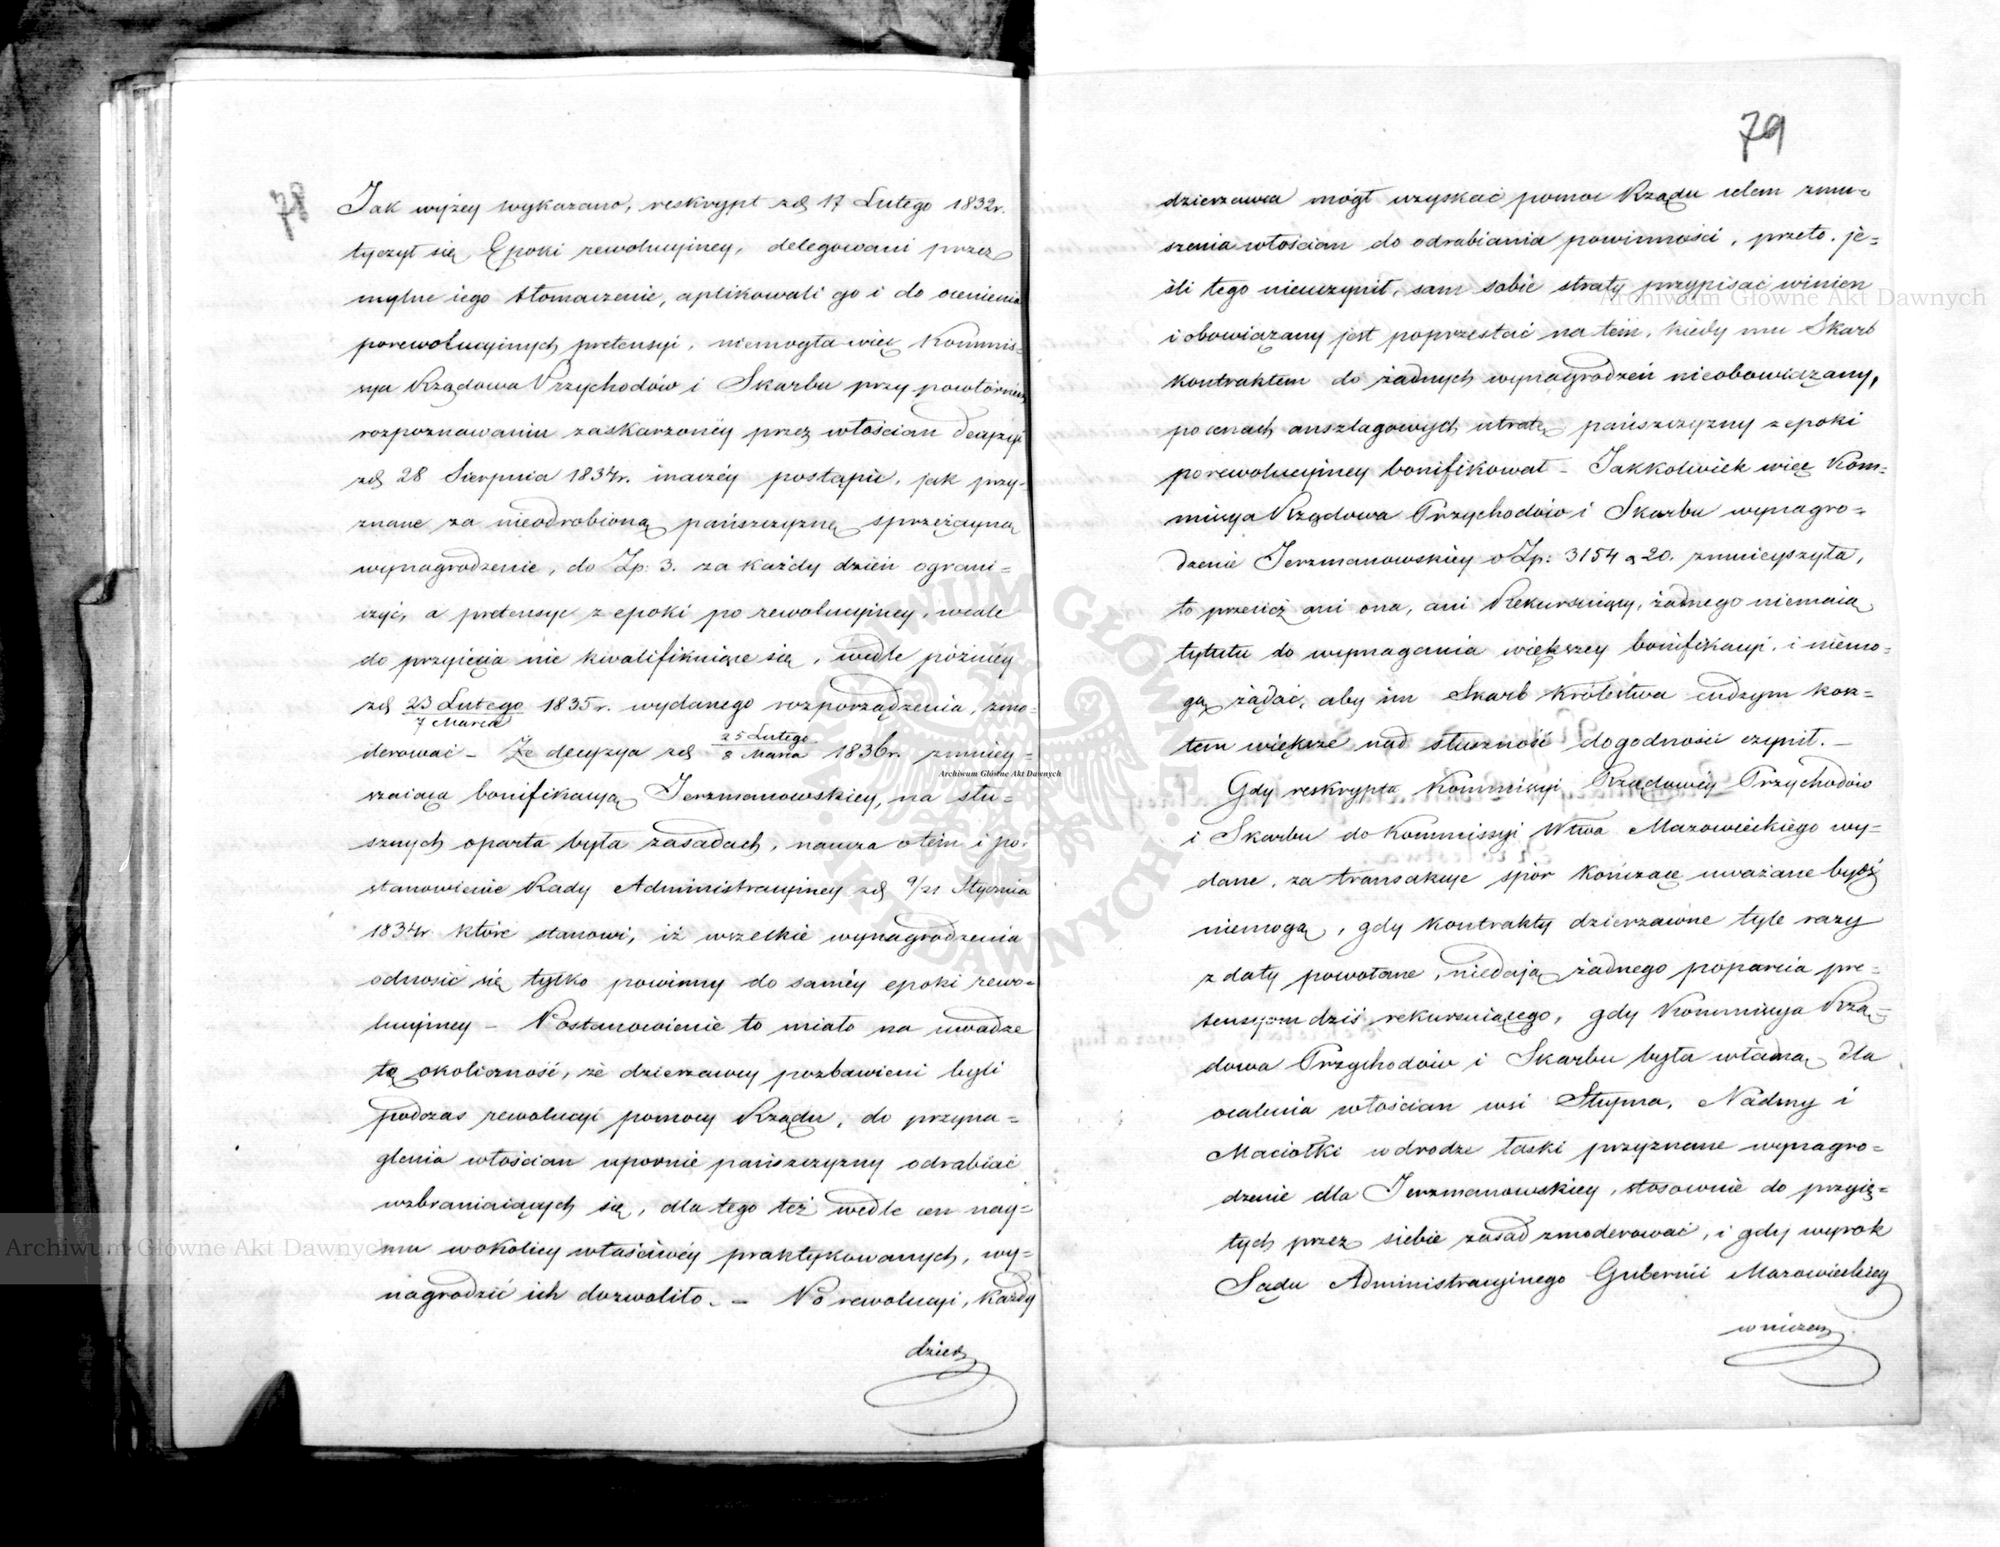 78
Jak wyżey wykazano, reskrypt zd. 17 Lutego 1832r.
tyczył się Epoki rewolucyiney, delegowani przez
mylne iego tłomaczenie, aplikowali go i do ocenienia
porewolucyinych pretensyi, niemogła więc Kommis-
sya Rządowa Przychodów i Skarbu przy powtórném
rozpoznawaniu zaskarżonéy przez włościan decyzyi
zd. 28 Sierpnia 1834r. inaczéy postąpić, jak przy-
znane za nieodrobioną pańszczyznę sprzężayną
wynagrodzenie, do Zp: 3. za każdy dzień ograni=
czyć, a pretensye z epoki po rewolucyiney, wcale
do przyięcia nie kwalifikuiące się, wedle późniey
zd. 23 Lutego/7 Marca 1835r. wydanego rozporządzenia, zmo-
derować – Że decyzya zd. 25 Lutego/8 Marca 1836r. zmniey-
szaiąca bonifikacyą Jerzmanowskiey, na słu=
sznych oparta była zasadach, naucza o tém i po-
stanowienie Rady Administracyiney zd. 9/21 Stycznia
1834r. które stanowi, iż wszelkie wynagrodzenia
odnosić się tylko powinny do saméy epoki rewo=
lucyiney – Postanowienie to miało na uwadze
tę okoliczność, że dzierżawcy pozbawieni byli
podczas rewolucyi pomocy Rządu, do przyna=
glenia włościan upornie pańszczyzny odrabiać
wzbraniaiących się, dla tego też wedle cen nay=
mu w okolicy właściwéy praktykowanych, wy=
nagrodzić ich dozwoliło. – Po rewolucyi, każdy
dzierż
79
dzierżawca mógł uzyskać pomoc Rządu celem zmu=
szenia włościan do odrabiania powinności, przeto je=
śli tego nieuczynił, sam sobie straty przypisać winien
i obowiązany jest poprzestać na tém, kiedy mu Skarb
kontraktem do żadnych wynagrodzeń nieobowiązany,
po cenach anszlagowych utratę pańszczyzny z epoki
porewolucyiney bonifikował – Jakkolwiek więc Kom=
missya Rządowa Przychodów i Skarbu wynagro=
dzenie Jerzmanowskiey o Zp: 3154 g 20. zmnieyszyła,
to przecież ani ona, ani Rekursuiący, żadnego niemaią
tytułu do wymagania większey bonifikacyi, i niemo=
gą żądać, aby im Skarb Królestwa cudzym kosz=
tem większe nad słuszność dogodności czynił. –
Gdy reskrypta Kommissyi Rządowéy Przychodów
i Skarbu do Kommissyi Wtwa Mazowieckiego wy=
dane, za transakcye spór kończące uważane bydź
niemogą, gdy kontrakty dzierżawne tyle razy
z daty powołane, niedaią żadnego poparcia pre=
tensyom dziś rekursuiącego, gdy Kommissya Rzą=
dowa Przychodów i Skarbu była władną dla
ocalenia włościan wsi Słupno, Nadmy i
Maciołki w drodze łaski przyznane wynagro=
dzenie dla Jerzmanowskiey, stosownie do przyię=
tych przez siebie zasad zmoderować, i gdy wyrok
Sądu Administracyinego Gubernii Mazowieckiey
w niczem
Archiwum Główne Akt Dawnych
Archiwum Główne Akt Dawnych
Archiwum Główne Akt Dawnych
ARCHIWUM GŁÓWNE AKT DAWNYCH